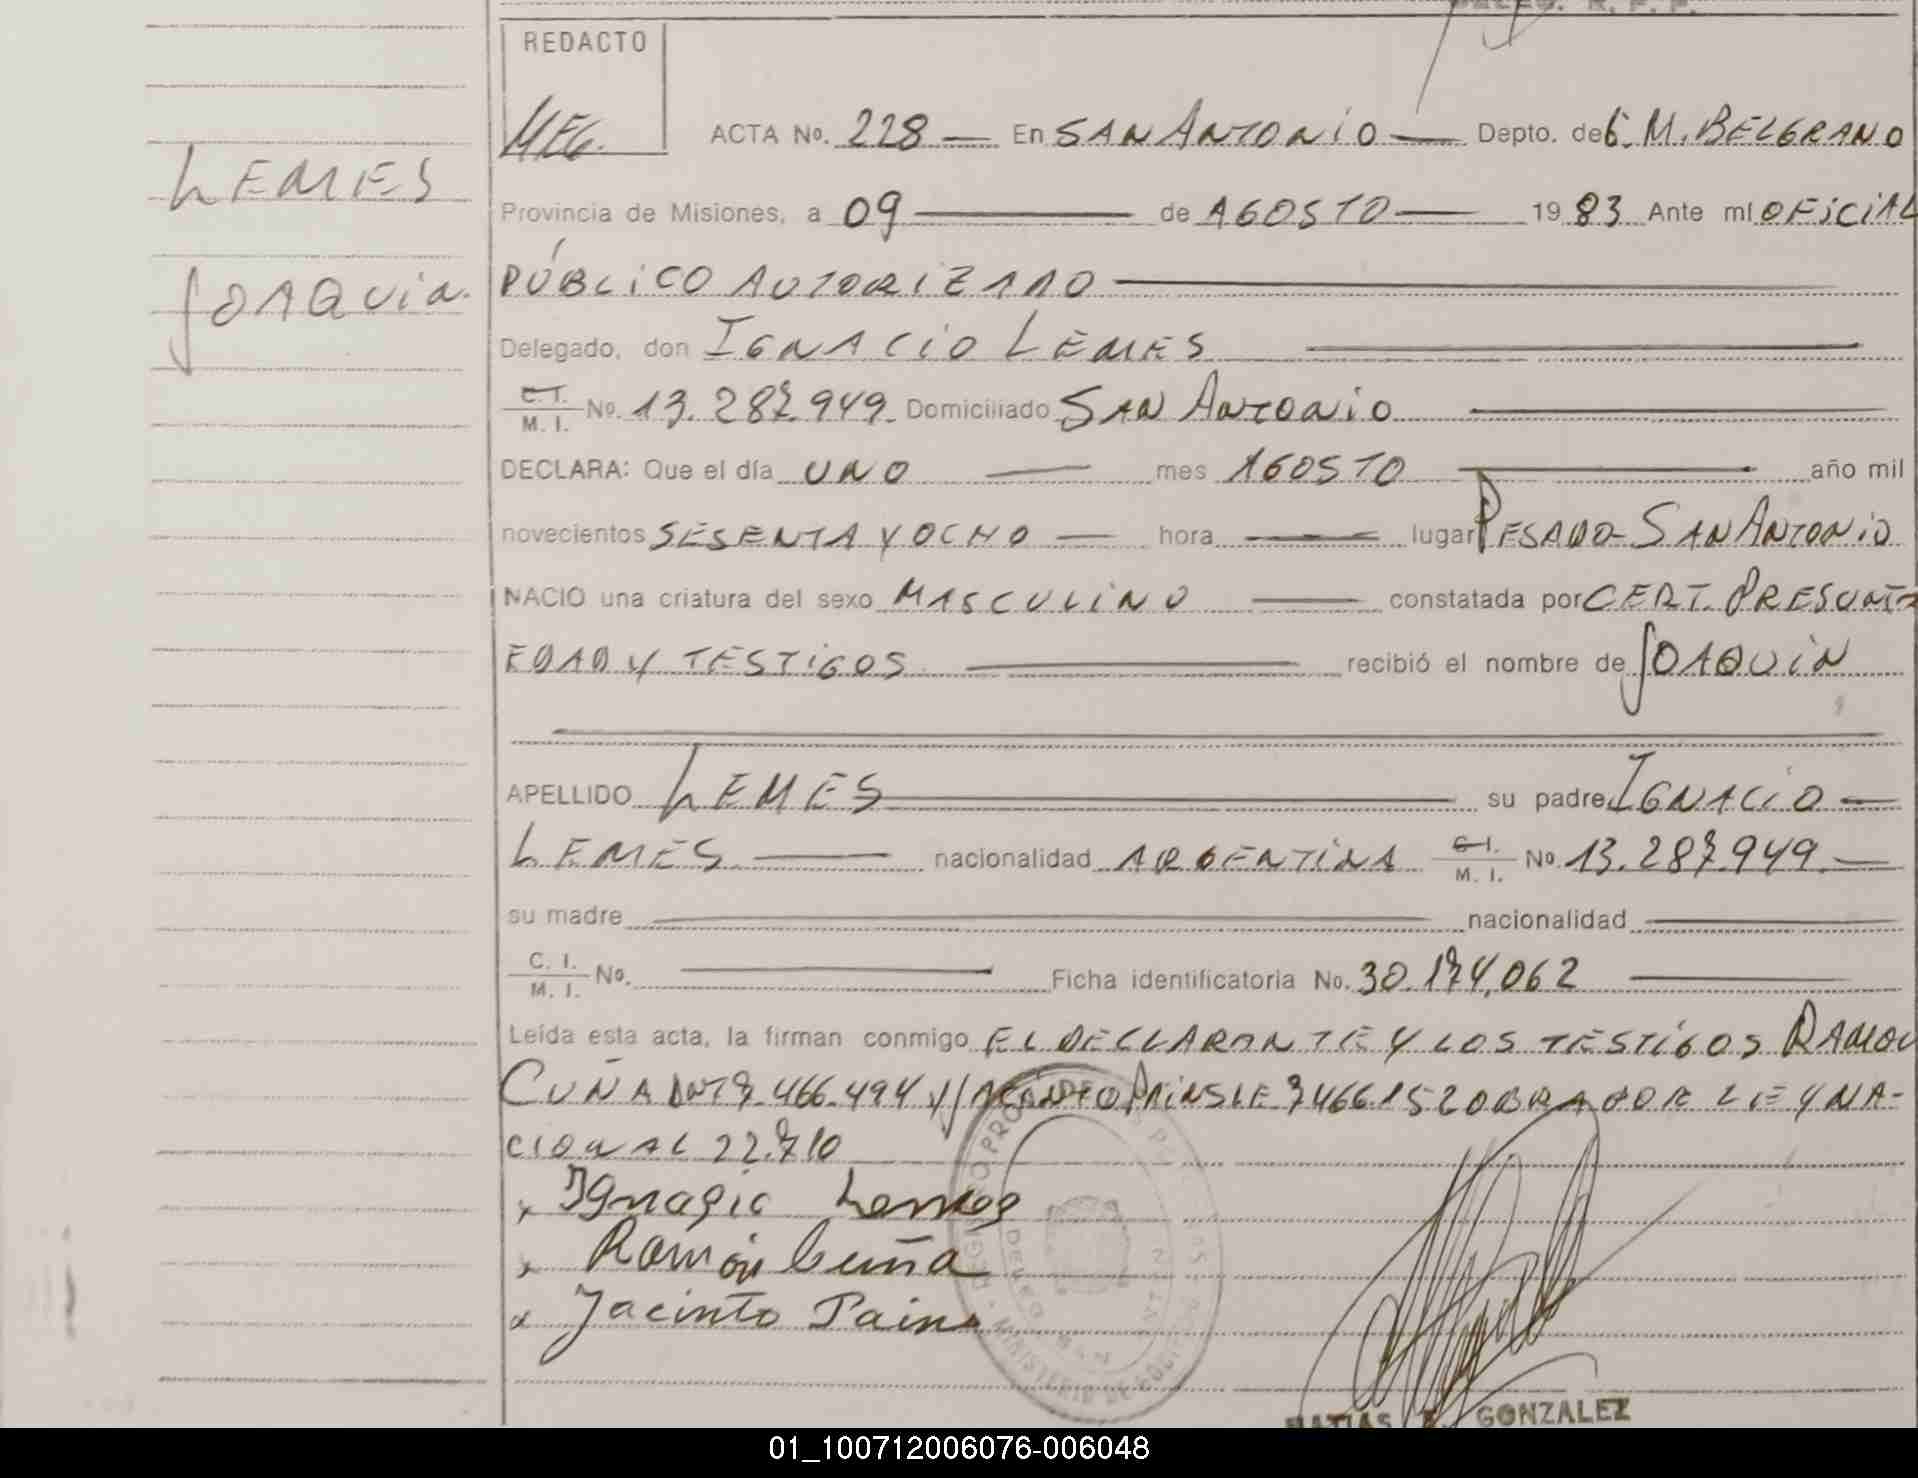 REDACTO
MEG.
ACTA No. 228 — En SAN ANTONIO — Depto. de G. M. BELGRANO
LEMES
JOAQUIN.
Provincia de Misiones, a 09 — de AGOSTO — 1983 Ante mí OFICIAL
PÚBLICO AUTORIZADO —
Delegado, don IGNACIO LEMES —
C.I. M.I. No. 13.287.949 Domiciliado SAN ANTONIO —
DECLARA: Que el día UNO — mes AGOSTO — año mil
novecientos SESENTA Y OCHO — hora — lugar PESADO- SAN ANTONIO
NACIO una criatura del sexo MASCULINO — constatada por CERT. PRESUNTA
EDAD Y TESTIGOS — recibió el nombre de JOAQUIN
APELLIDO LEMES — su padre IGNACIO —
LEMES — nacionalidad ARGENTINA C.I. M.I. No. 13.287.949 —
su madre — nacionalidad —
C. I. M. I. No. — Ficha identificatoria No. 30.174.062 —
Leída esta acta, la firman conmigo EL DECLARANTE Y LOS TESTIGOS RAMON
CUÑA DNI 7.466.494 Y JACINTO PAINS LE 7466152 OBRADOR LEY NA-
CIONAL 22.710
x Ignacio Lemes
x Ramón Cuña
x Jacinto Pains
MATIAS GONZALEZ
01_100712006076-006048